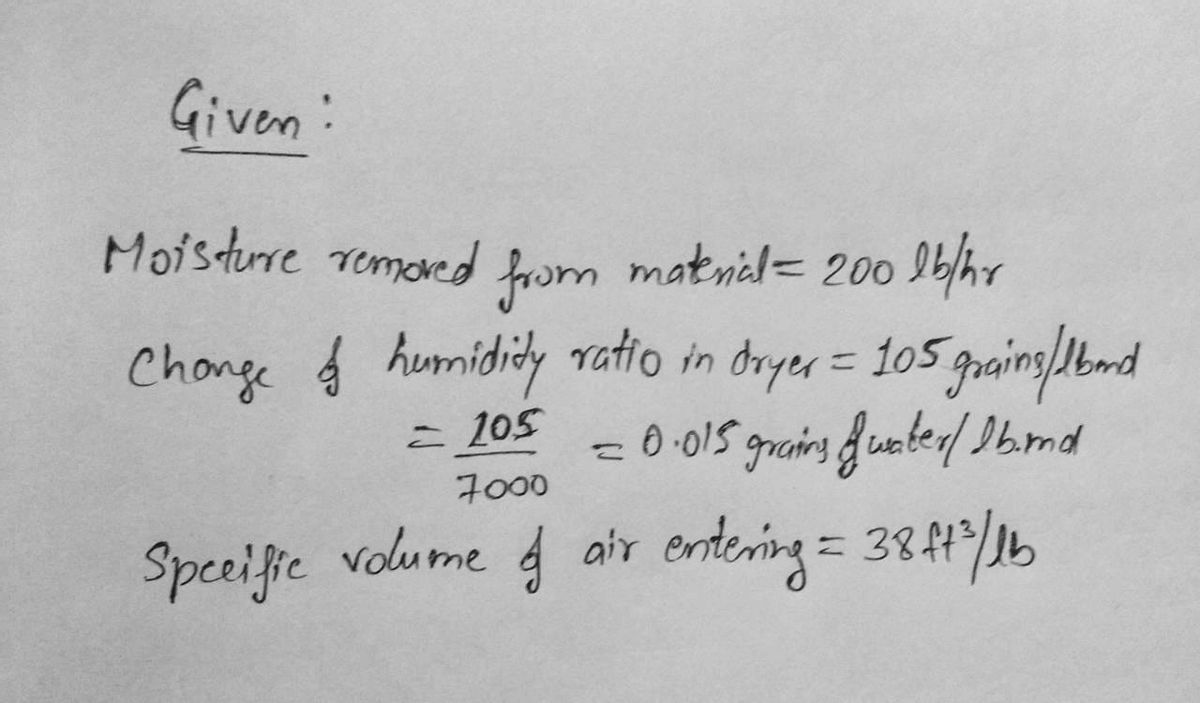 Given :
Moisture removed from material = 200 lb/hr
Change of humidity ratio in dryer = 105 grains/lbmd
= 105/7000 = 0.015 grains of water/ lb.md
Specific volume of air entering = 38 ft³/lb